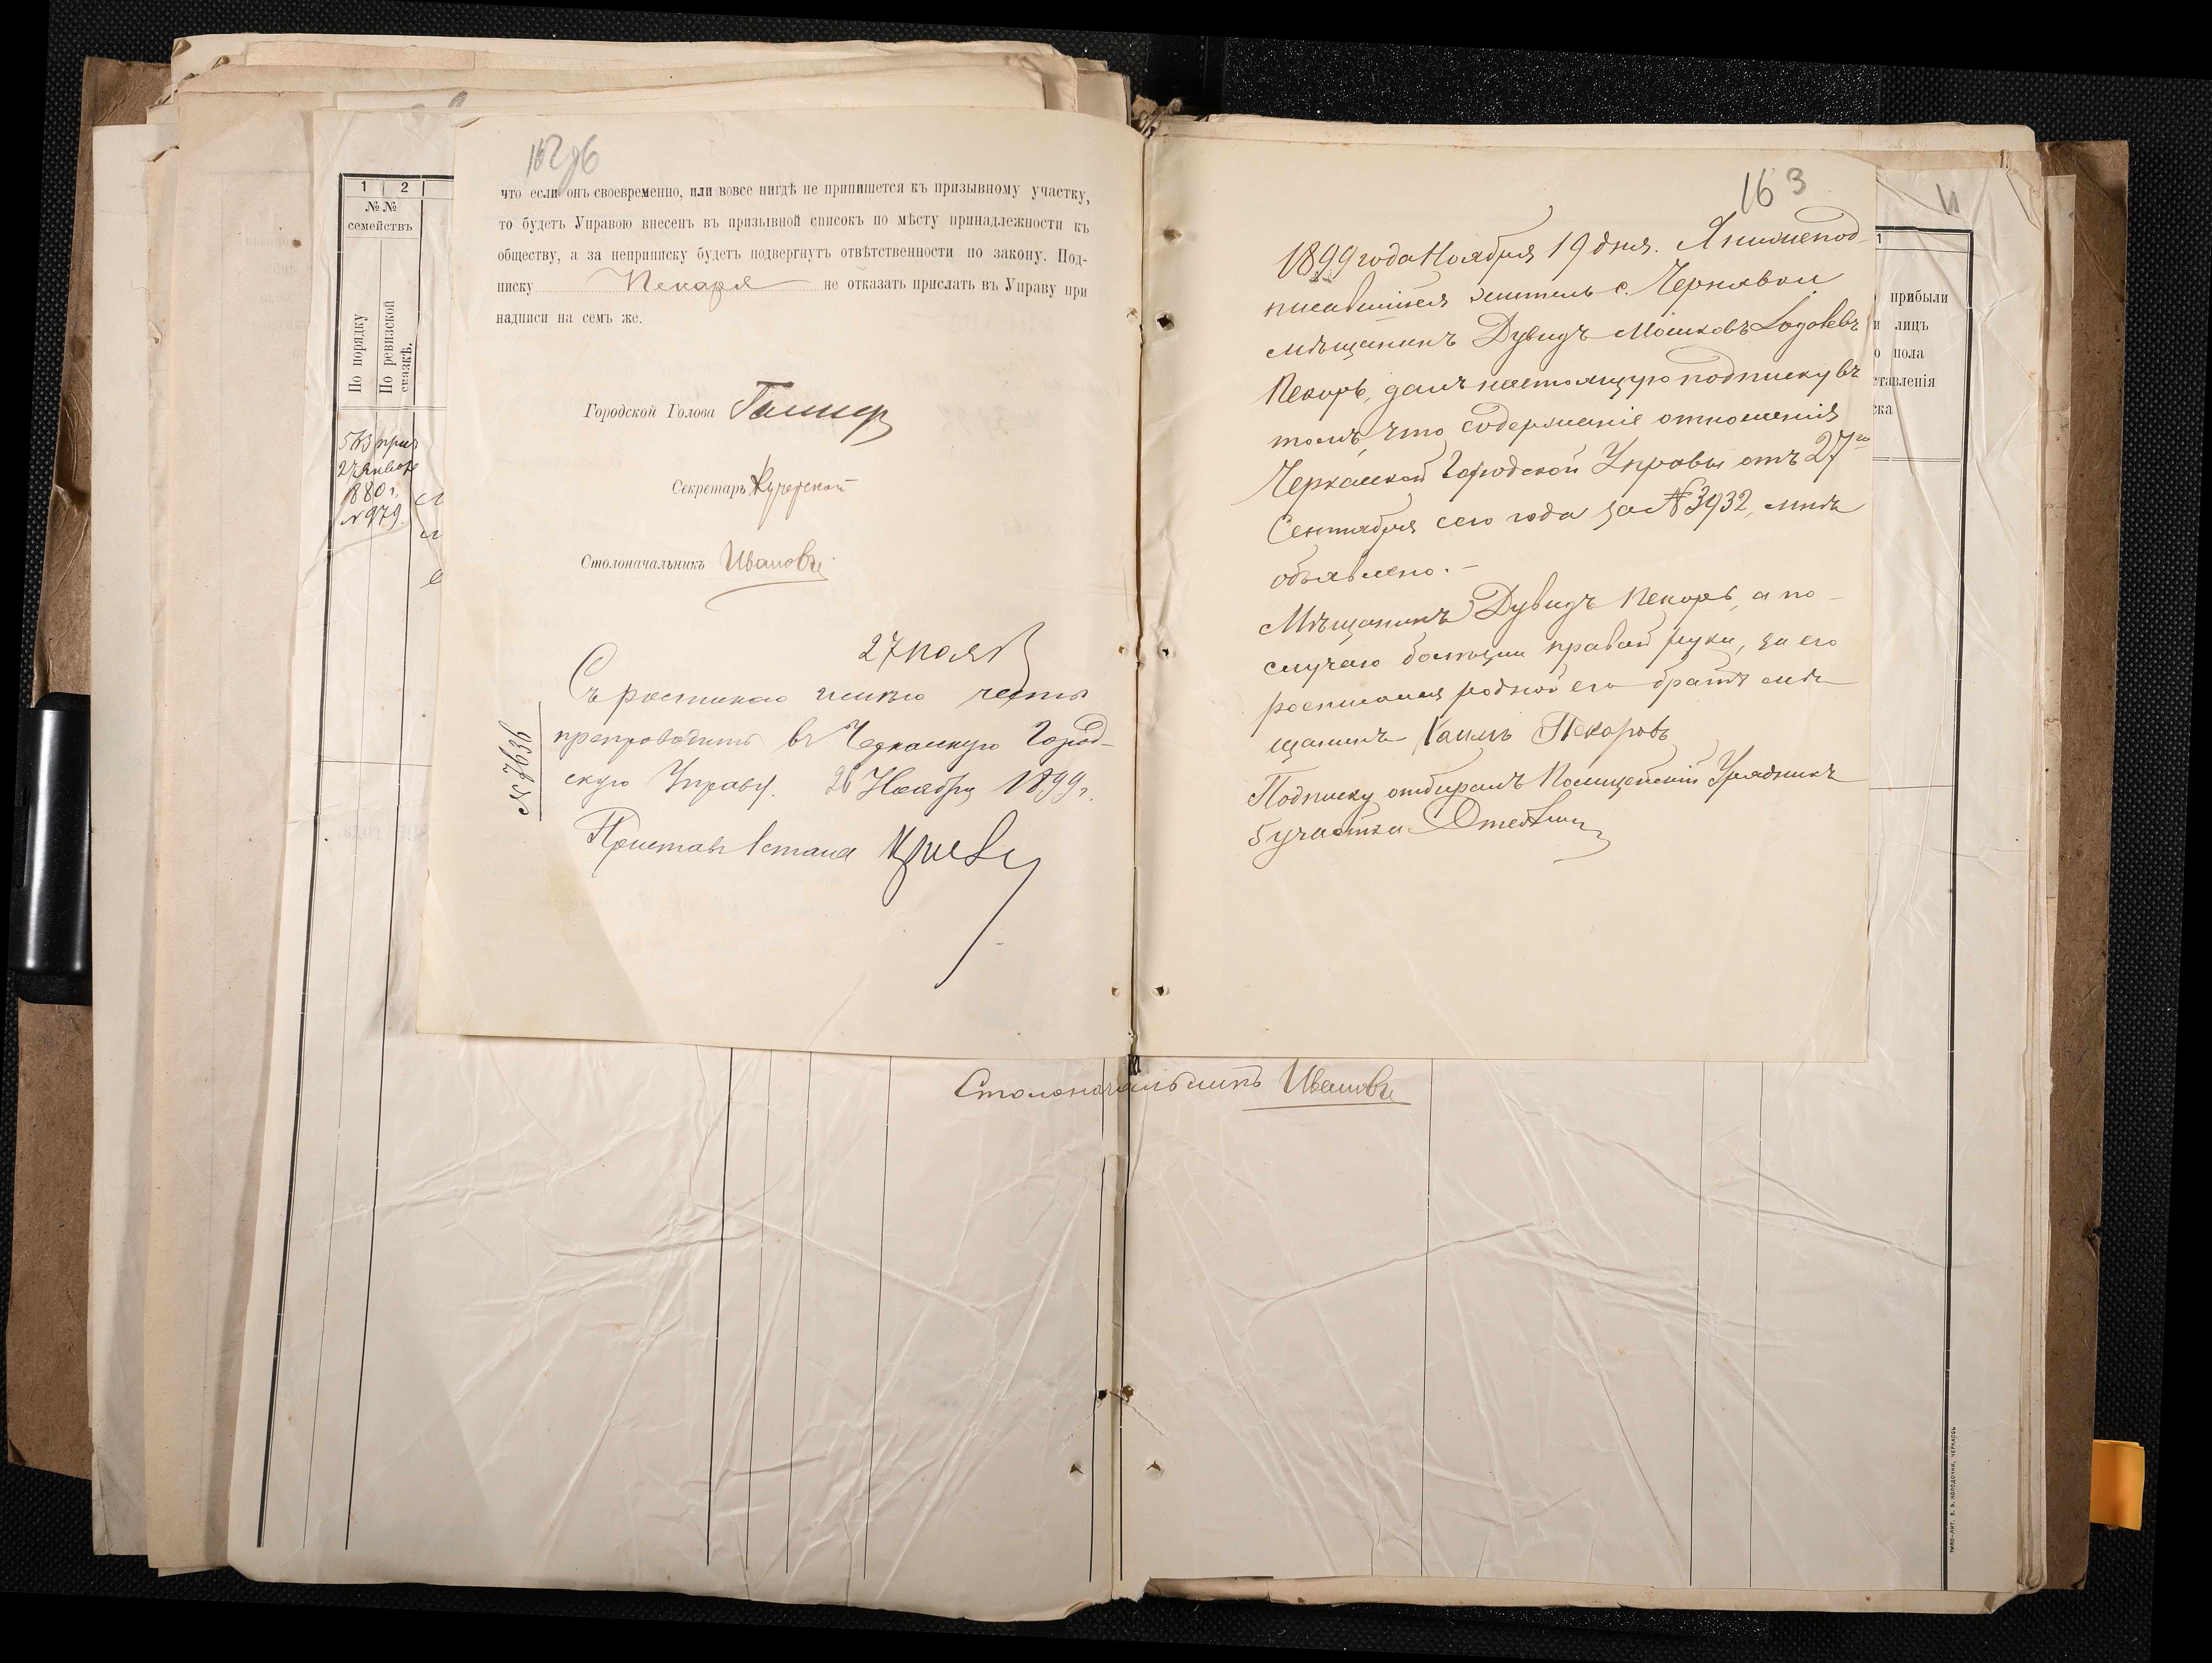 162 об
что если онъ своевременно, или вовсе нигдѣ не припишется къ призывному участку,
то будетъ Управою внесенъ въ призывной списокъ по мѣсту принадлежности къ
обществу, а за неприписку будетъ подвергнутъ отвѣтственности по закону. Под-
писку Пекаря не отказать прислать въ Управу при
надписи на семъ же.
Городской Голова
Секретарь Кучерской
Столоначальникъ Ивановъ
27 нояб
Съ роспискою имѣю честь
препроводить въ Черкасскую Город-
скую Управу. 26 Ноября 1899 г.
№ 7636
Приставъ 1 стана
1 2
№ №
семействъ
По порядку
По ревизской
сказкѣ.
563 прис
27 Января
1880 г.
№ 979.
163
1899 года Ноября 19 дня. Я нижепод-
писавшійся житель с. Чернявки
мѣщанинъ Дувидъ Мошковъ
Пекарь, далъ настоящую подписку въ
томъ, что содержаніе отношенія
Черкасской Городской Управы отъ 27го
Сентября сего года за № 3932, мнѣ
объявлено. -
Мѣщанинъ Дувидъ Пекарь, а по
случаю болѣзни правой руки, за его
росписался родной его братъ мѣ-
щанинъ Хаимъ Пекаровъ
Подписку отбиралъ Полицейскій Урядникъ
5 участка
прибыли
и лицъ
о пола
ставленія
ска
Столоначальникъ Ивановъ
ТИПО-ЛИТ. В. В. КОЛОДОЧКИ, ЧЕРКАССЫ